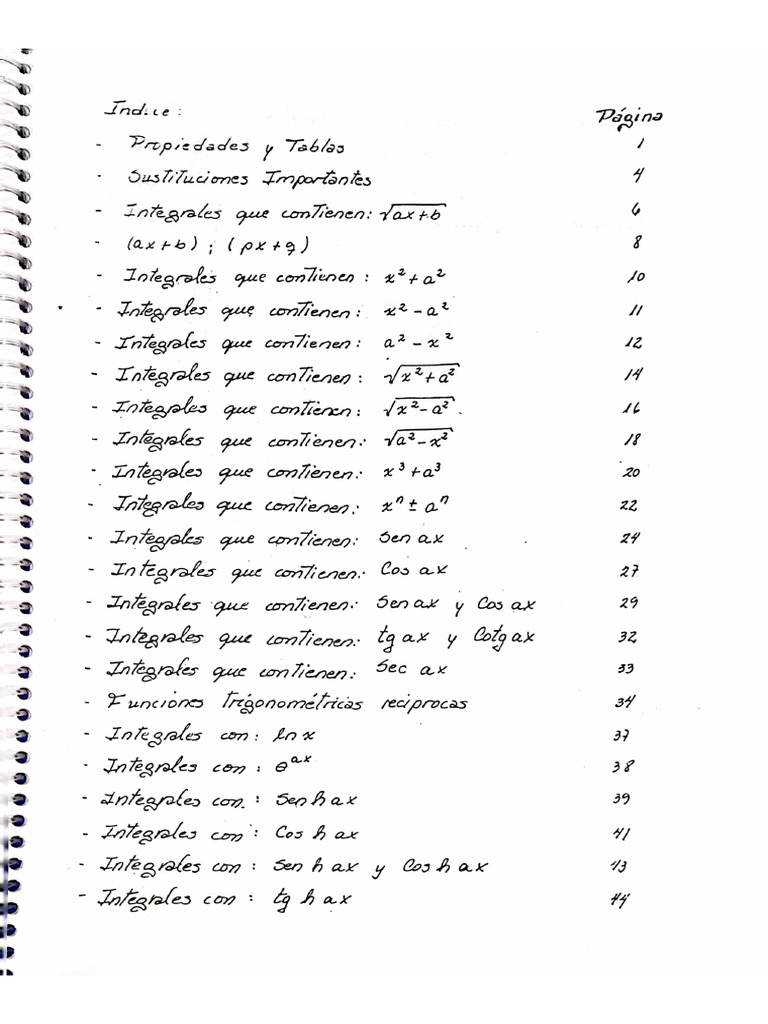 Indice: Página
- Propiedades y Tablas 1
- Sustituciones Importantes 4
- Integrales que contienen: √ax+b 6
- (ax+b) ; (px+q) 8
- Integrales que contienen: x²+a² 10
- Integrales que contienen: x²-a² 11
- Integrales que contienen: a²-x² 12
- Integrales que contienen: √x²+a² 14
- Integrales que contienen: √x²-a². 16
- Integrales que contienen: √a²-x² 18
- Integrales que contienen: x³+a³ 20
- Integrales que contienen: xⁿ±aⁿ 22
- Integrales que contienen: Sen ax 24
- Integrales que contienen: Cos ax 27
- Integrales que contienen: Sen ax y Cos ax 29
- Integrales que contienen: tg ax y Cotg ax 32
- Integrales que contienen: Sec ax 33
- Funciones Trigonométricas reciprocas 34
- Integrales con: ln x 37
- Integrales con: e^ax 38
- Integrales con: Sen h ax 39
- Integrales con: Cos h ax 41
- Integrales con: Sen h ax y Cos h ax 43
- Integrales con: tg h ax 44